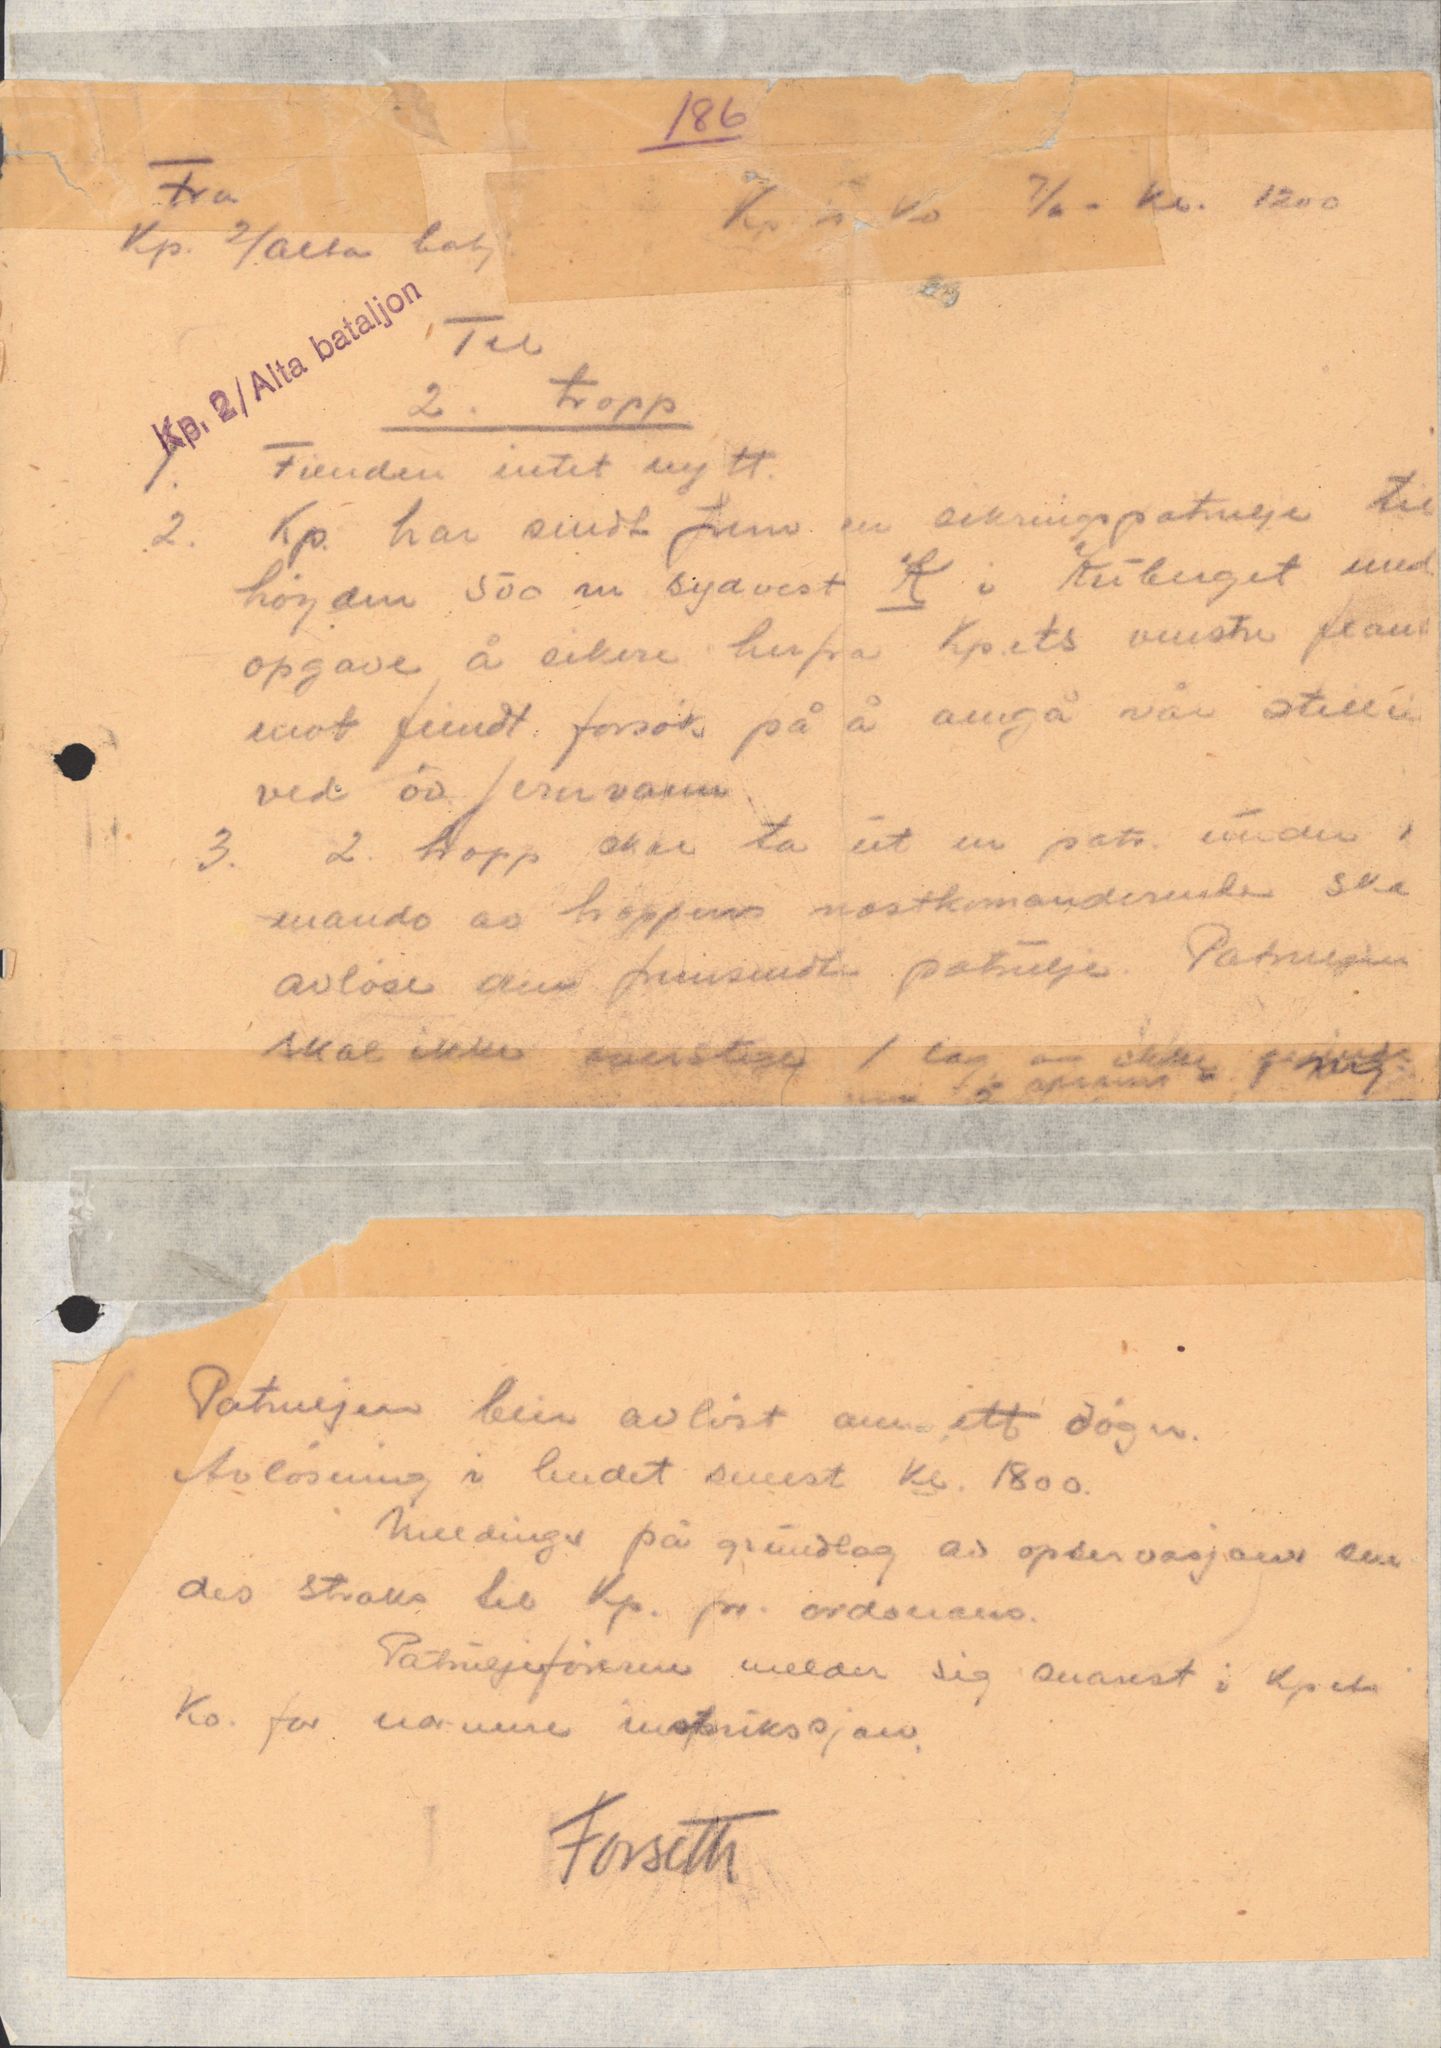 186
Fra
Kp. 2/Alta batj.
Kp s Ko 7/6 - Kl. 1200
Kp. 2/Alta bataljon
Til
2. tropp
1. Fienden intet nytt.
2. Kp. har sendt frem en sikringspatrulje til
høyden 500 m sydvest K i Kuberget med
opgave å sikre herfra Kpets venstre flan
mot fiendt. forsøk på å omgå vår stilli
ved öv Jernvann
3. 2. tropp skal ta ut en patr. under
mando av troppens næstkomanderende ska
avløse den fremsendte patrulje. Patruljen
skal ikke overstige 1 lag
Patruljen blir avløst om ett døgn.
Avløsning i budet senest Kl. 1800.
Meldinger på grundlag av opservasjoner sen
des straks til Kp. pr. ordonans.
Patruljeføreren melder sig snarest i Kpets
Ko. for nærmere instruksjon.
Forseth